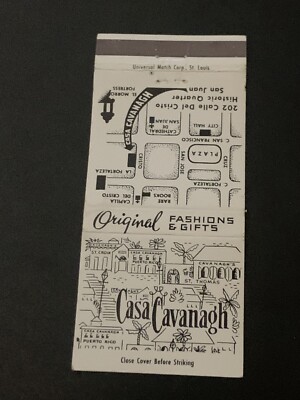 Universal Match Corp., St. Louis
202 Calle Del Cristo
Historic Quarter
San Juan
EL MORRO
FORTRESS
CASA CAVANAGH
CATHEDRAL
DE
SAN JUAN
CITY HALL
C. SAN FRANCISCO
PLAZA
CRUZ
SAN JOSE
CRISTO
LA FORTALEZA
C. FORTALEZA
RARE
BOOKS
CAPILLA
DEL CRISTO
Original FASHIONS
& GIFTS
ST. CROIX
CASA CAVANAGH
CAVANAGH'S
ST. THOMAS
Casa Cavanagh
CASA CAVANAGH
PUERTO RICO
Close Cover Before Striking